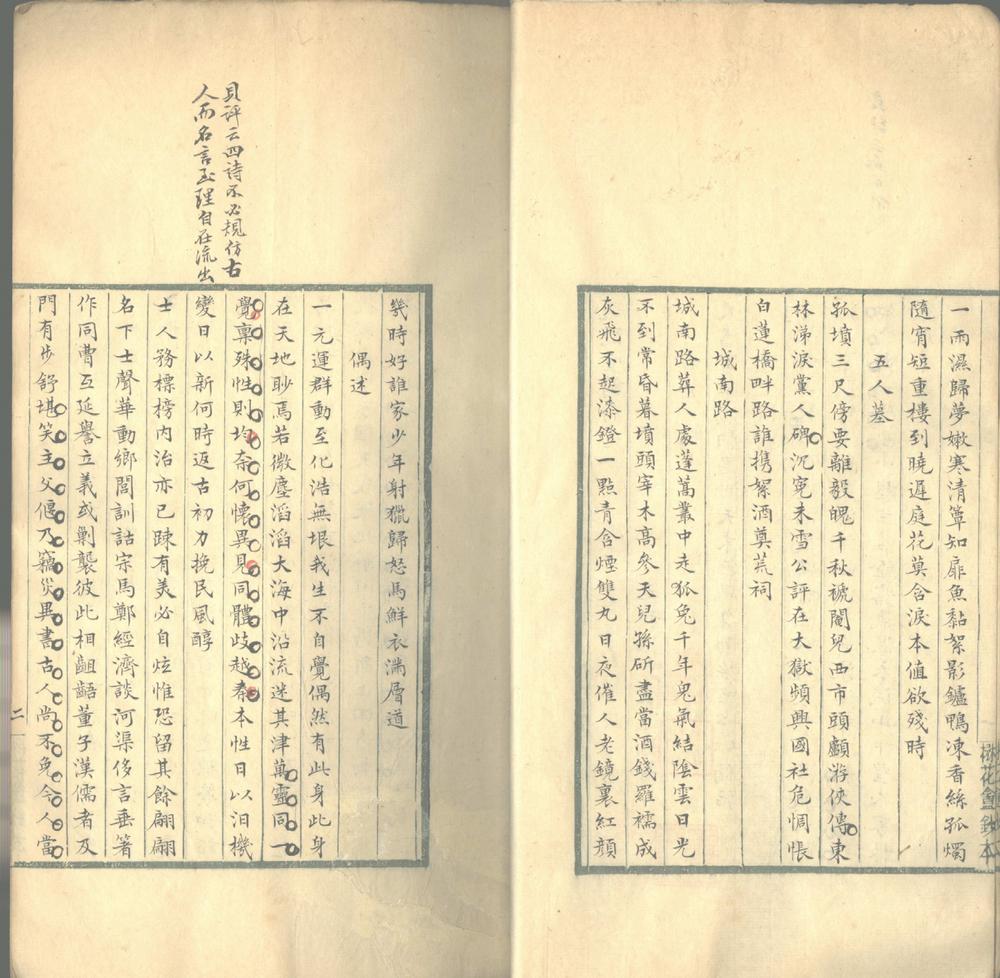 一雨濕歸夢嫩寒清簟知扉魚黏絮影鑪鴨凍香絲孤燭
隨宵短重樓到曉遲庭花莫含淚本值欲殘時
五人墓
孤墳三尺傍要離毅魄千秋褫閹兒西市頭顱游俠傳東
林涕淚黨人碑沉冤未雪公評在大獄頻興國社危惆悵
白蓮橋畔路誰攜絮酒奠荒祠
城南路
城南路葬人處蓬蒿叢中走狐兔千年鬼氣結陰雲日光
不到常昏暮墳頭宰木高參天兒孫斫盡當酒錢羅襦成
灰飛不起漆鐙一點青含煙雙丸日夜催人老鏡裏紅顏
桃花盦鈔本
幾時好誰家少年射獵歸怒馬鮮衣滿層道
偶述
一元運群動至化浩無垠我生不自覺偶然有此身此身
在天地眇焉若微塵滔滔大海中沿流迷其津萬靈同一
覺稟殊性則均奈何懷異見同體歧越秦本性日以汩機
變日以新何時返古初力挽民風醇
士人務標榜內治亦已踈有美必自炫惟恐留其餘翩翩
名下士聲華動鄉閭訓詁宗馬鄭經濟談河渠侈言垂著
作同曹互延譽立義或剿襲彼此相齟齬董子漢儒者及
門有步舒堪笑主父偃乃竊災異書古人尚不免今人當
二
貝評云四詩不必規仿古
人而名言至理自在流出